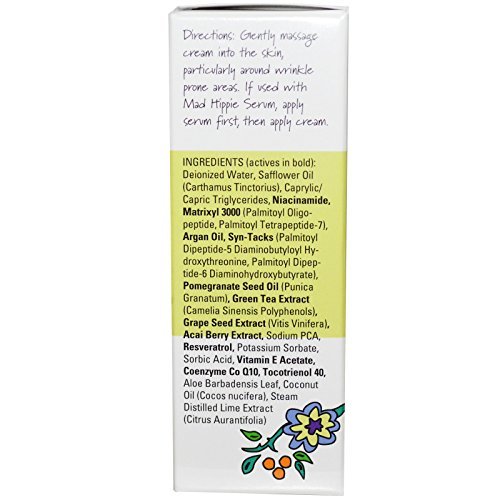 Directions: Gently massage
cream into the skin,
particularly around wrinkle
prone areas. If used with
Mad Hippie Serum, apply
serum first, then apply cream.
INGREDIENTS (actives in bold):
Deionized Water, Safflower Oil
(Carthamus Tinctorius), Caprylic/
Capric Triglycerides, Niacinamide,
Matrixyl 3000 (Palmitoyl Oligo-
peptide, Palmitoyl Tetrapeptide-7),
Argan Oil, Syn-Tacks (Palmitoyl
Dipeptide-5 Diaminobutyloyl Hy-
droxythreonine, Palmitoyl Dipep-
tide-6 Diaminohydroxybutyrate),
Pomegranate Seed Oil (Punica
Granatum), Green Tea Extract
(Camelia Sinensis Polyphenols),
Grape Seed Extract (Vitis Vinifera),
Acai Berry Extract, Sodium PCA,
Resveratrol, Potassium Sorbate,
Sorbic Acid, Vitamin E Acetate,
Coenzyme Co Q10, Tocotrienol 40,
Aloe Barbadensis Leaf, Coconut
Oil (Cocos nucifera), Steam
Distilled Lime Extract
(Citrus Aurantifolia)